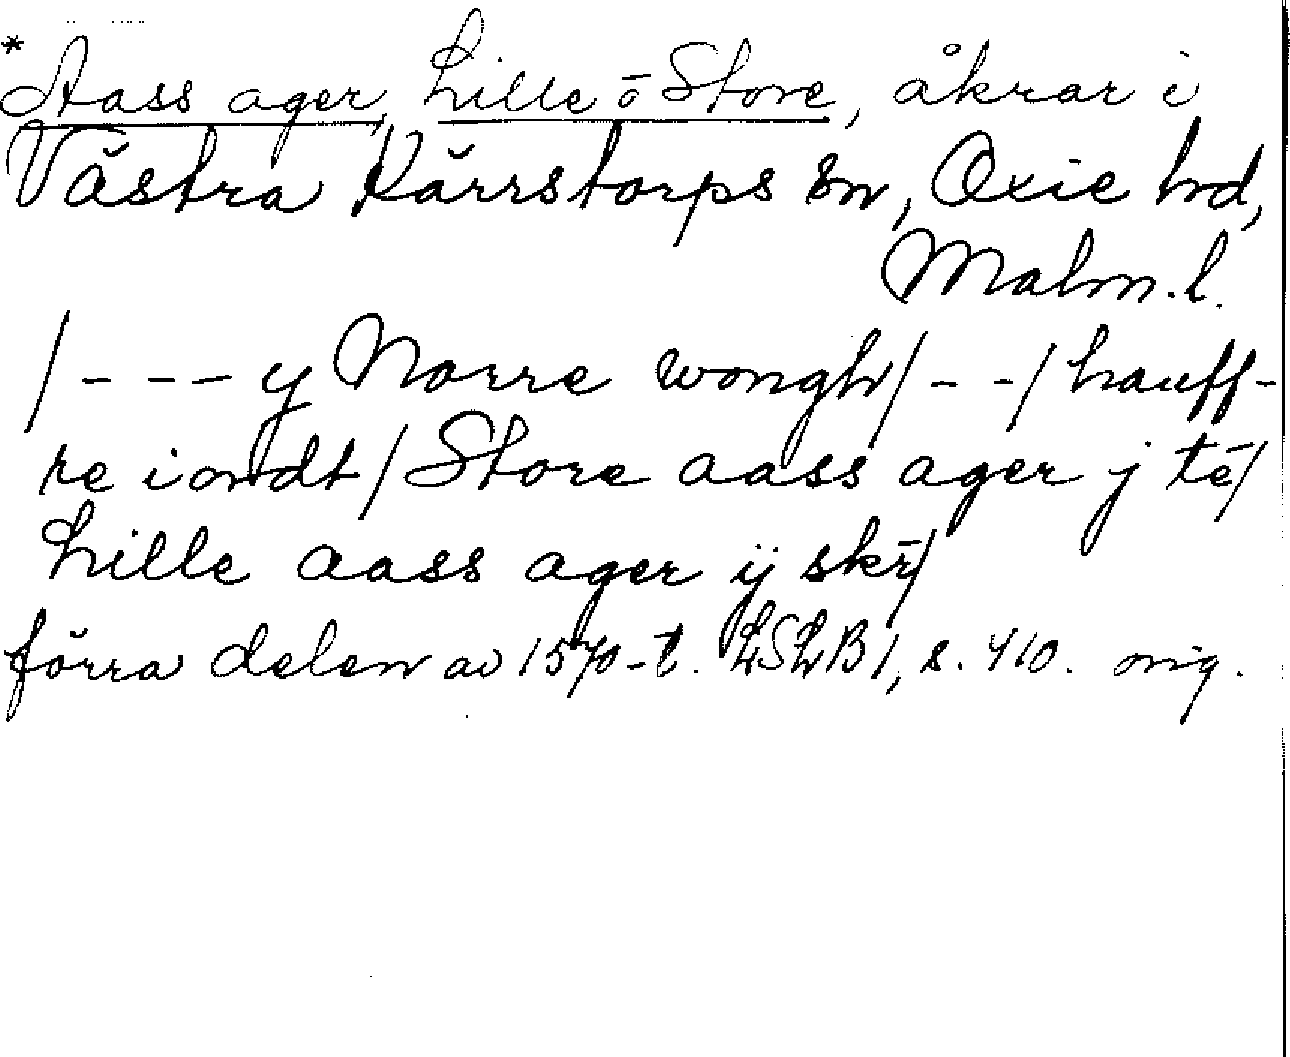 *Aass ager, Lille o Store, åkrar i
Västra Kärrstorps sn, Oxie hd,
Malm. l.
/ - - - y Norre wongh / - - / hauff-
re iordt / Store aass ager j te /
Lille aass ager ij skr /
förra delen av 1570-t. LSLB 1, s. 410. orig.